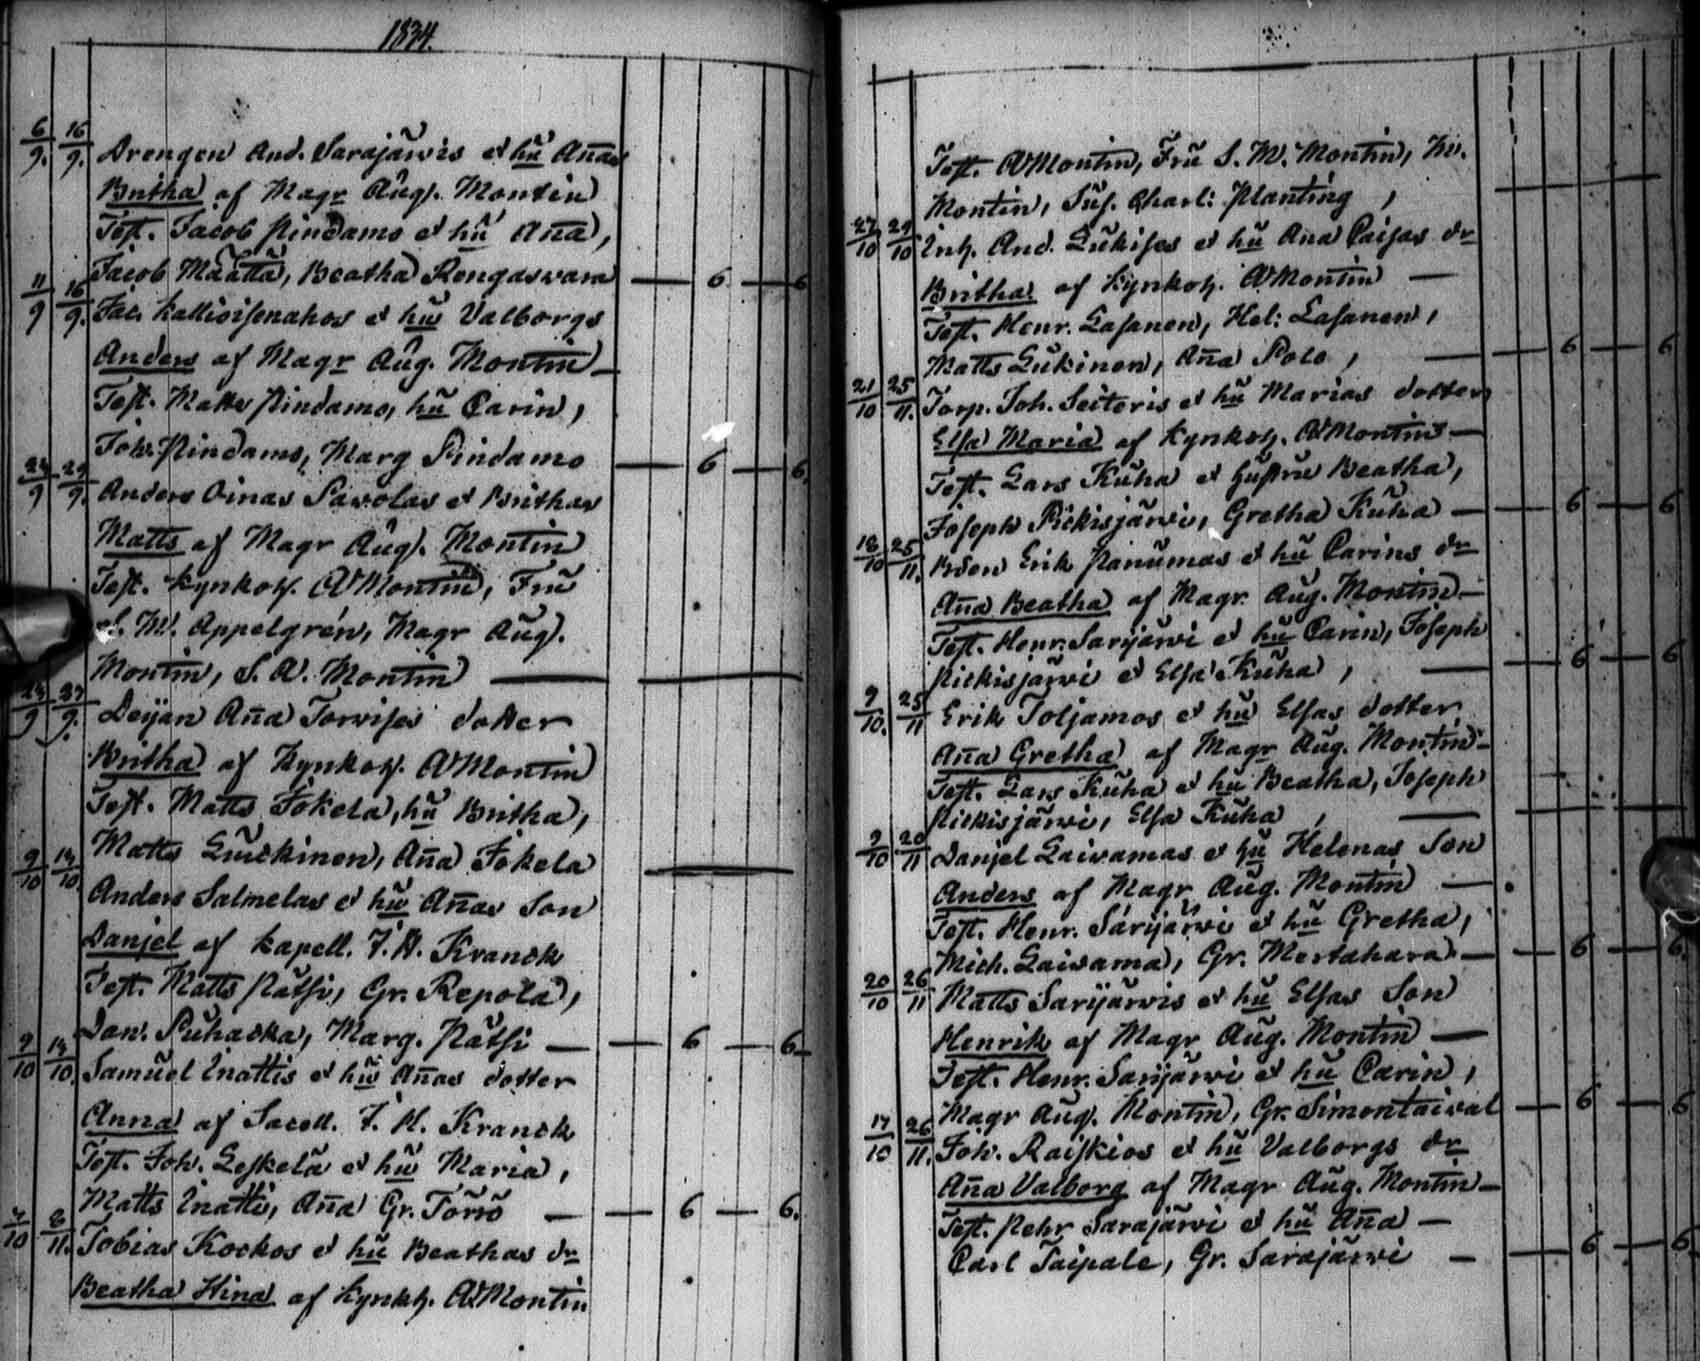 1834.
6/9. 16/9. Drengen And. Sarajärvis et hu Añas
Britha af Magr Aug. Montin
Test. Jacob Pindamo et hu Aña,
Jacob Määttä, Beatha Rengasvara — 6 — 6
11/9 16/9. Jac. Kallioisenahos et hu Valborgs
Anders af Magr Aug. Montin —
Test. Matts Pindamo, hu Carin,
Joh. Pindamo, Marg Pindamo — 6 — 6.
24/9 29/9. Anders Oinas Savolas et Brithas
Matts af Magr Aug. Montin
Test. Kyrkoh. A Montin, Fru
S. M. Appelgrén, Magr Aug.
Montin, S. A. Montin —
24/9 27/9. Deijan Aña Torvises dotter
Britha af Kyrkoh. A Montin
Test. Matts Jokela, hu Britha,
Matts Luukinen, Aña Jokela —
9/10 14/10. Anders Salmelas et hu Añas Son
Danjel af Kapell. J. H. Kranck
Test. Matts Pätsi, Gr. Repola,
Dan. Puhacka, Marg. Pätsi — 6 — 6
9/10 14/10. Samuel Inattis et hu Añas dotter
Anna af Sacell. J. H. Kranck
Test. Joh. Leskelä et hu Maria,
Matts Inatti, Aña Gr. Törrö — 6 — 6.
4/10 8/11. Tobias Kockos et hu Beathas dr
Beatha Stina af Kyrkh. A Montin
Test. A Montin, Fru S. M. Montin, Hr.
Montin, Jus. Charl: Planting,
27/10 29/10 Inh. And. Lukises et hu Aña Caisas dr
Britha af Kyrkoh. A Montin —
Test. Henr. Lasanen, Hel: Lasanen,
Matts Lukinen, Aña Polo, — 6 — 6
21/10 25/11. Torp. Joh. Seiteris et hu Marias dotter
Elsa Maria af Kyrkoh. A Montin —
Test. Lars Kuha et hustru Beatha,
Joseph Pickisjärvi, Gretha Kuha — 6 — 6
18/10 25/11. Bden Erik Panumas et hu Carins dr
Aña Beatha af Magr. Aug. Montin —
Test. Henr. Sarijärvi et hu Carin, Joseph
Pickisjärvi et Elsa Kuha, — 6 — 6
9/10. 25/11 Erik Toljamos et hu Elsas dotter
Aña Gretha af Magr Aug. Montin —
Test. Lars Kuha et hu Beatha, Joseph
Pickisjärvi, Elsa Kuha, —
9/10 20/11 Danjel Laivamas et hu Helenas Son
Anders af Magr Aug. Montin —
Test. Henr. Särijärvi et hu Gretha,
Mich. Laivama, Gr. Mertahara — 6 — 6.
20/10 26/11 Matts Sarijärvis et hu Elsas Son
Henrik af Magr Aug. Montin —
Test. Henr. Sarijärvi et hu Carin,
Magr Aug. Montin, Gr. Simontaival — 6 — 6
17/10 26/11. Joh. Raiskios et hu Valborgs dr
Aña Valborg af Magr Aug. Montin —
Test. Pehr Sarajärvi et hu Aña —
Carl Taipale, Gr. Sarajärvi — 6 — 6